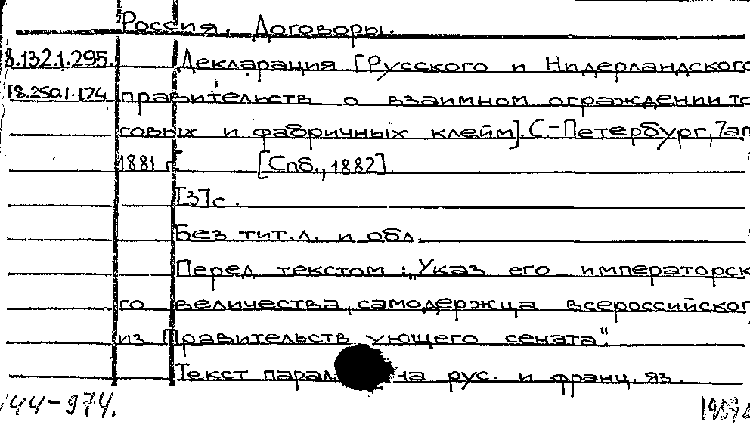 Россия. Договоры.
8.132.1.295. Декларация [Русского и Нидерландского
18.250.1.174 правительств о взаимном ограждении то
говых и фабричных клейм]. С.-Петербург, 7 ап
1881 г. [Спб., 1882]
[3] с.
Без тит. л. и обл.
Перед текстом: „Указ его императорск
го величества, самодержца всероссийског
из Правительствующего сената".
Текст парал на рус. и франц. яз.
44-974.